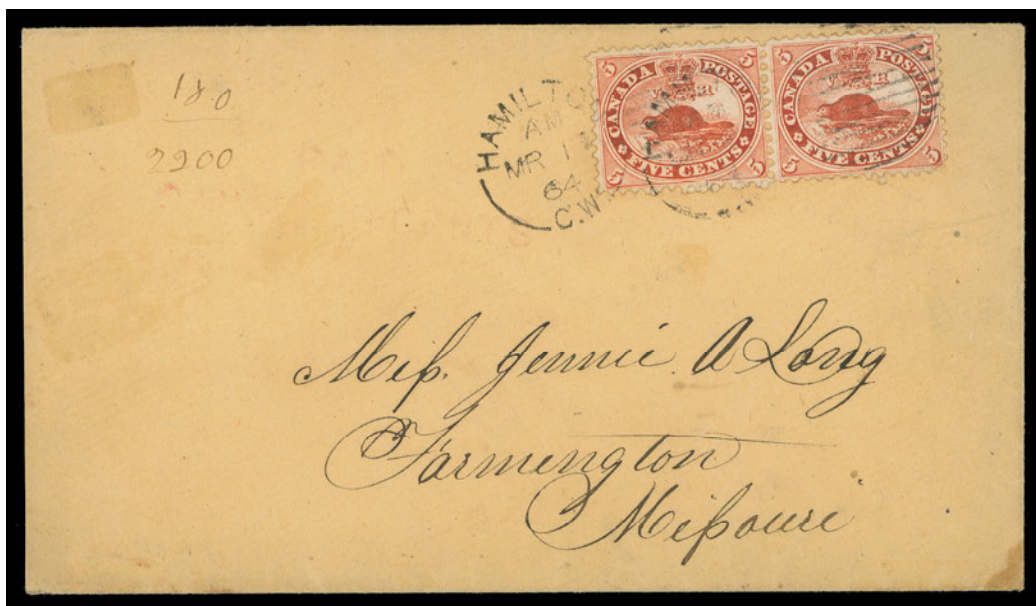 180
2900
HAMILTO
AM
MR 1
64
C.W
5 CANADA POSTAGE 5
5 FIVE CENTS 5
5 CANADA POSTAGE 5
5 FIVE CENTS 5
Miſs. Jennie A Long
Farmington
Miſsouri